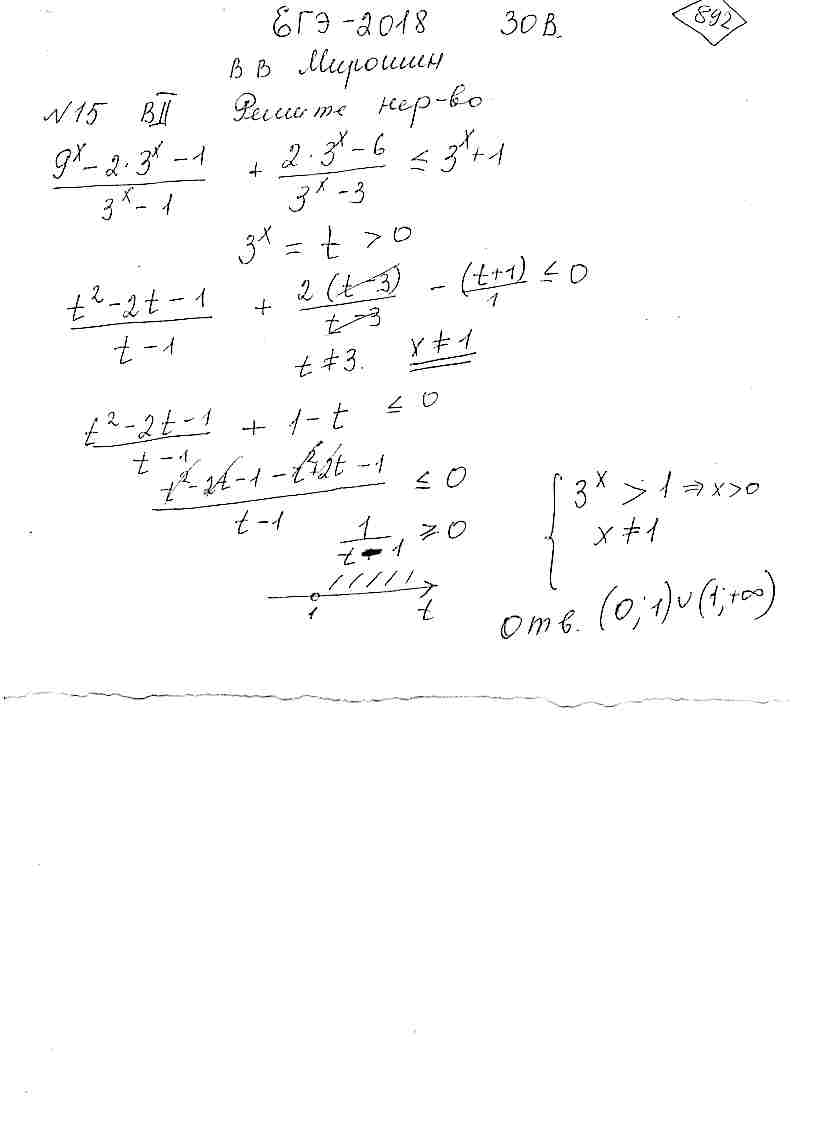 ЕГЭ-2018 30В. 892
В В Мирошин
N15 BII Решите нер-во
(9^x - 2·3^x - 1)/(3^x - 1) + (2·3^x - 6)/(3^x - 3) ≤ 3^x + 1
3^x = t > 0
(t^2 - 2t - 1)/(t - 1) + 2(t - 3)/(t - 3) - (t+1)/1 ≤ 0
t ≠ 3. x ≠ 1
(t^2 - 2t - 1)/(t - 1) + 1 - t ≤ 0
(t^2 - 2t - 1 - t^2 + 2t - 1)/(t - 1) ≤ 0
1/(t - 1) ≥ 0
1 t
{ 3^x > 1 ⇒ x > 0
x ≠ 1
Отв. (0; 1) ∪ (1; +∞)